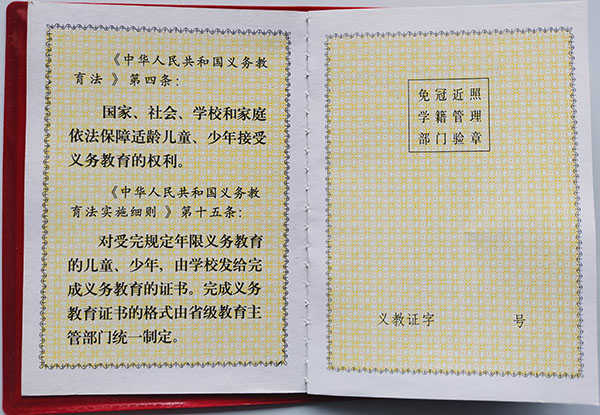 《中华人民共和国义务教
育法 》第四条:
国家、社会、学校和家庭
依法保障适龄儿童、少年接受
义务教育的权利。
《中华人民共和国义务教
育法实施细则 》第十五条:
对受完规定年限义务教育
的儿童、少年, 由学校发给完
成义务教育的证书。完成义务
教育证书的格式由省级教育主
管部门统一制定。
免冠近照
学籍管理
部门验章
义教证字 号